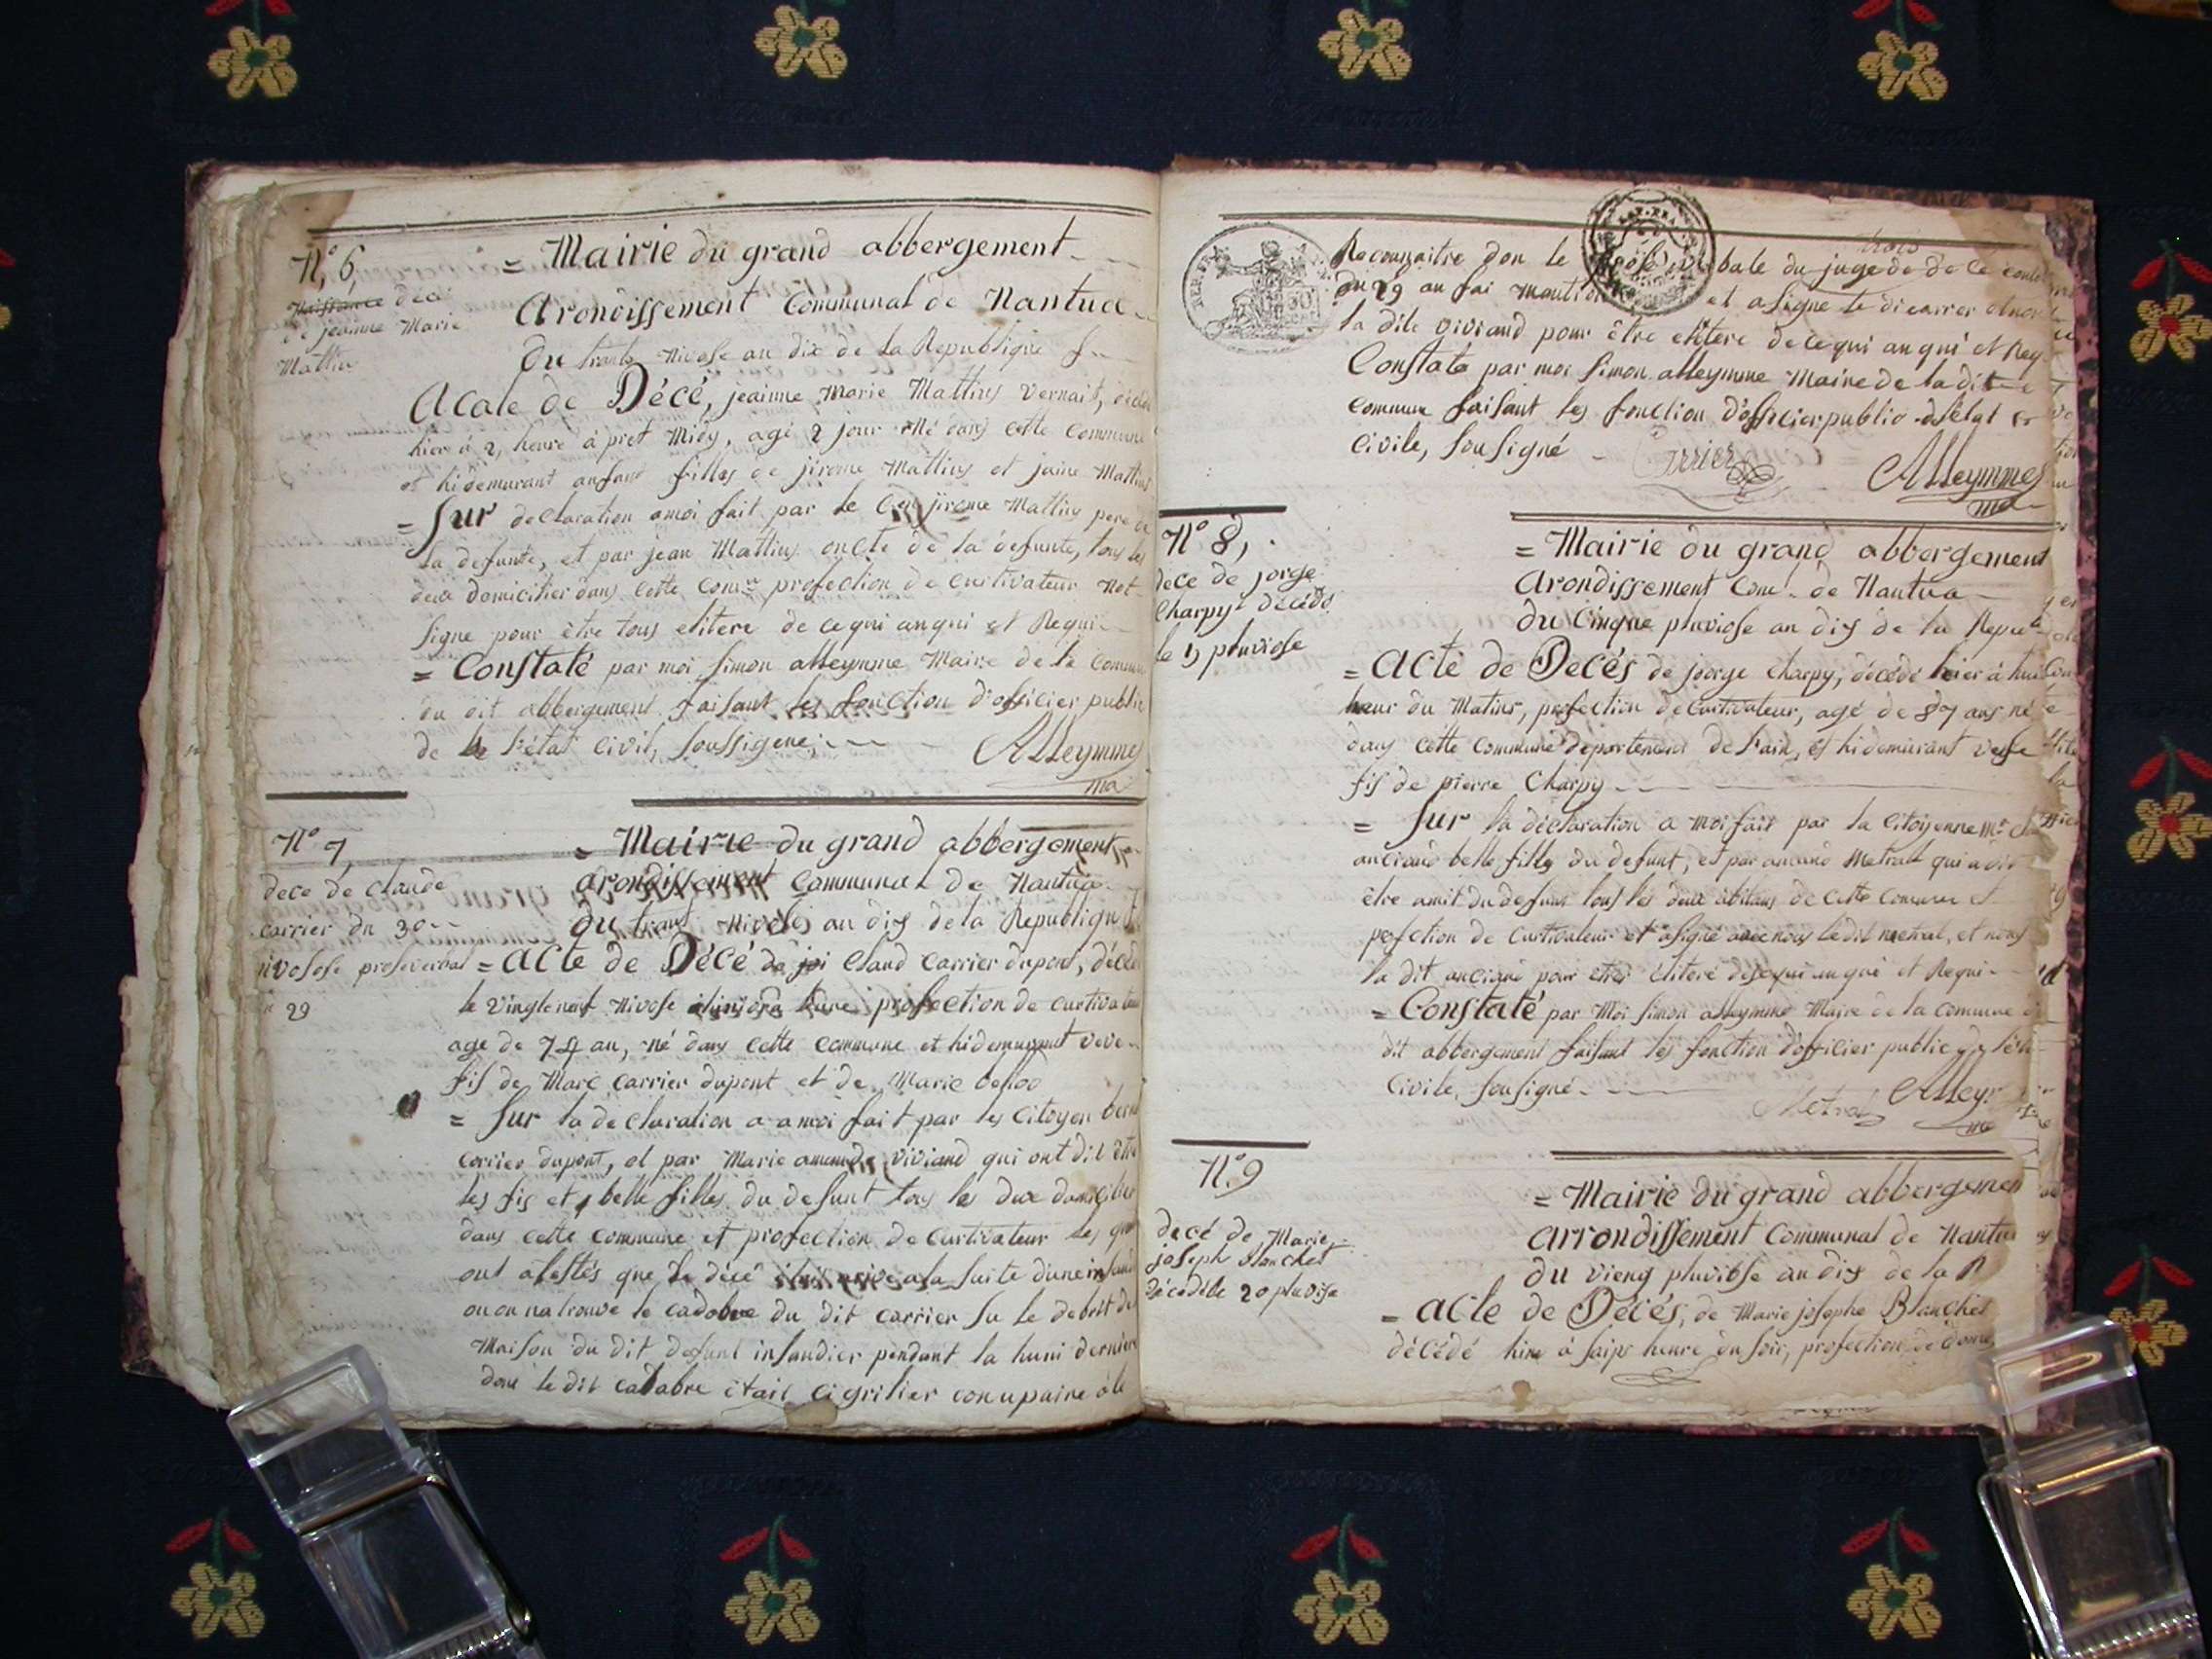 N.° 6,
Naissance décé
de jeainne Marie
Mattin
= Mairie du grand abbergement
Arondissement Communal de Nantua
Du trante Nivose an dix de la Republique f
Acate de Décé, jeainne Marie Mattins Vernait,
hier à 2, heure à pret Midy, agé 2 jour Né dans cette Commune
et hidemurant anfant filles de jirome Mattins et jaine Mattins
= Sur declaration amoi fait par le jirome Mattins pere de
la defunte, et par jean Mattins oncle de la defunte, tous les
deux domicilier dans cette Com.ne profection de curtivateur Not
signe pour être tous elitere de ce qui anqui et Requi
= Constaté par moi Simon alleymme Maire de la Commune
du dit abbergement faisant les fonction d'officier public
de l'état Civil, soussigene,
Alleymme
ma
N° 7,
dece de claude
carrier du 30
nivosose proseverbal
29
= Mairie du grand abbergement
arondissement Communal de Nantua
du trant Nivose an dis de la Republique
= Acte de Décé de Claud Carrier dupont, décédé
le vingtneuf Nivose profection de curtivateur
age de 74 an, né dans cette commune et hidemurant veve
fis de Marc Carrier dupont et de Marie
= Sur la declaration a amoi fait par les Citoyen
Carrier dupont, et par Marie viviand qui ont dit être
les fis et belle filles du defunt tous les deux domicilier
dans cette commune et profection de curtivateur les quel
ont atestés que le décé a la suite dune
ou on na trouvé le cadobre du dit Carrier su le debrit de
Maison du dit defunt insandier pendant la huni derniere
dont le dit cadabre était
Reconnaitre don le du juge de de
trois
du 29 an fai mantion et asigne le di carrier et non
la dite viviand pour être elitere de ce qui anqui et Req
Constate par moi Simon alleymme Maire de la dit
commune faisant les fonction d'officier public
Civile, sousigné
Alleymme
ma
N° 8,
dece de jorge
Charpy décédé
le pluviose
= Mairie du grand abbergement
Arondissement Com. de Nantua
du Cinque pluviose an dis de la Repu
= Acte de Decés de jeorge Charpy, décédé hier à huit
heur du Matins, profection de Curtivateur, agé de 87 ans né
dans cette Commune departement de l'ain, et hidemurant veve
fis de pierre Charpy
= Sur la déclaration a moi fait par la Citoyenne
belle fille du defunt, et par amand Metrall qui a dit
être amit du defunt tous les deux abitans de cette Commune et
profection de Curtivateur et asigné avec nous le dit metral, et nons
la dit pour etre elitere de ce qui anqui et Requi
= Constaté par Moi Simon alleymme Maire de la Commune
dit abbergement faisant les fonction d'officier public
Civile, sousigné
Metral Alley
ma
N.° 9
decé de Marie
joseph blanchet
décédé le 20 pluvise
= Mairie du grand abbergemen
arrondissement Communal de Nantua
du vieng pluviose an dis de la R
= Acte de Décés, de Marie josephe Blanchet
décédé hire à heure du soir, profection de